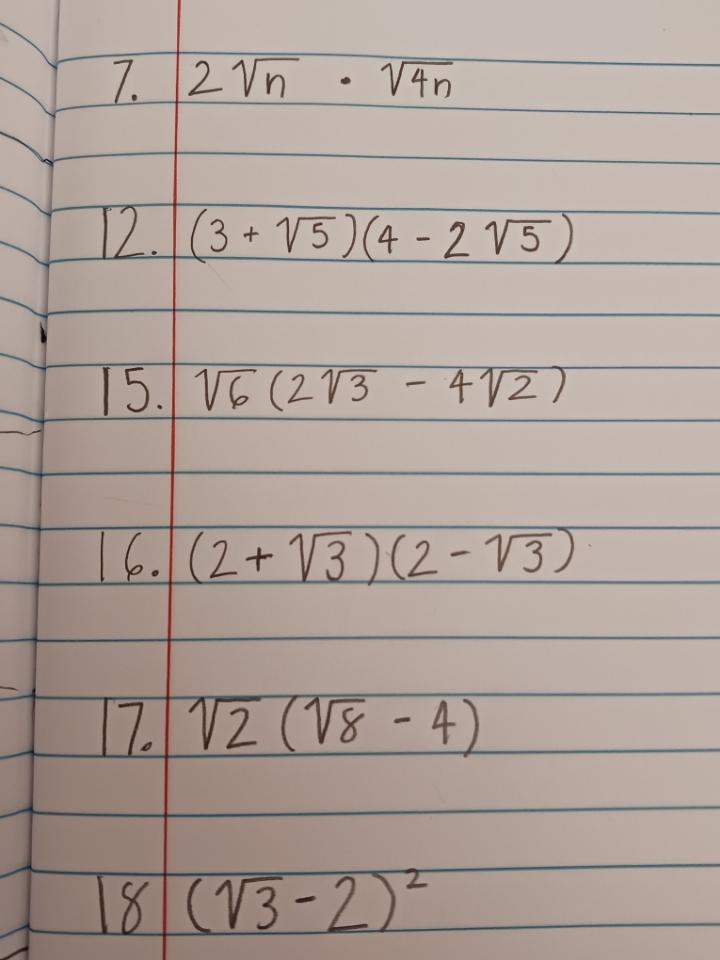 7. 2√n · √4n
12. (3 + √5)(4 - 2√5)
15. √6(2√3 - 4√2)
16. (2 + √3)(2 - √3)
17. √2(√8 - 4)
18 (√3 - 2)²